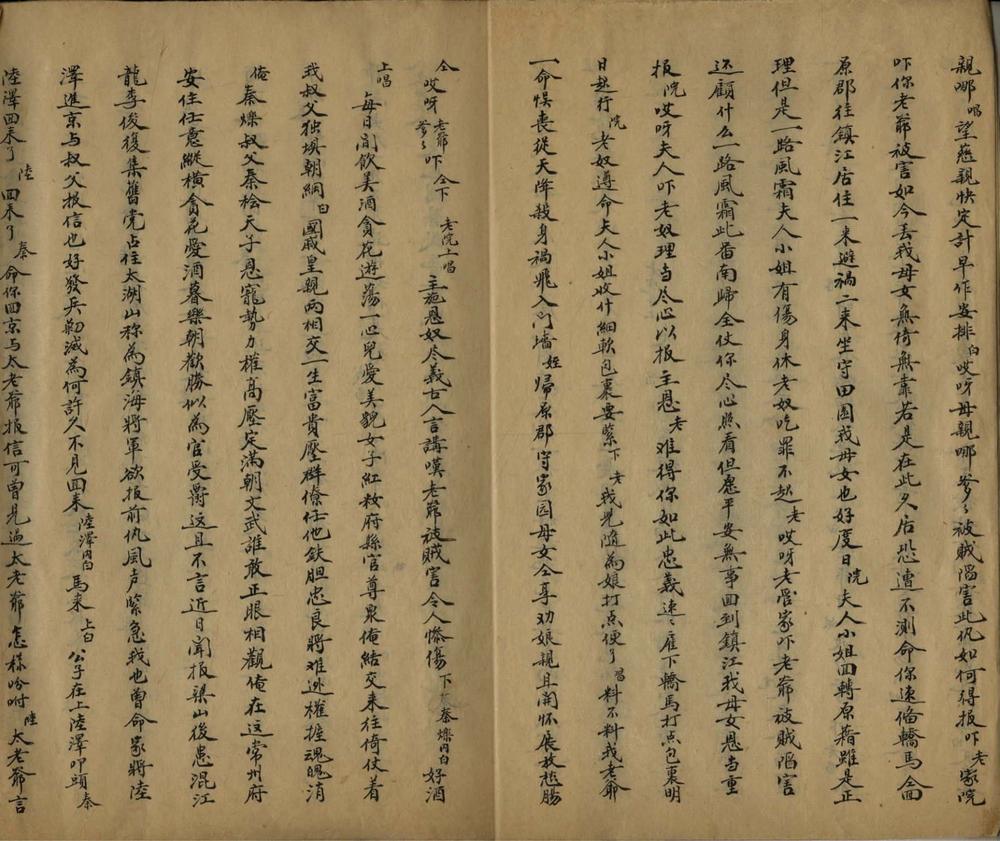 親哪唱望慈親快定計早作安排白哎呀母親哪爹〻被賊陷害此仇如何得报吓老家院
吓你老爺被害如今丢我母女無倚無靠若是在此久后恐遭不測命你速偹轎馬仝回
原郡往鎮江居住一来避禍二来坐守田园我母女也好度日院夫人小姐回轉原藉雖是正
理但是一路風霜夫人小姐有傷身休老奴吃罪不起老哎呀老管家吓老爺被賊陷害
还顧什么一路風霜此番南歸全仗你尽心照看但愿平安無事回到鎮江我母女恩当重
报院哎呀夫人吓老奴理当尽心以报主恩老难得你如此忠義速〻雇下轎馬打点包裹明
日起行院老奴遵命夫人小姐收什細軟包裹要緊下老我兒隨為娘打点便了唱料不料我老爺
一命悞喪從天降殺身禍飛入门墻姪帰原郡守家园母女仝享劝娘親且開怀展放愁腸
仝哎呀老爺爹〻吓仝下老院上唱主施恩奴尽義古人言講嘆老爺被賊害令人慘傷下秦燦内白好酒
上唱每日间飲美酒貪花遊蕩一心兒愛美貌女子紅粧府縣官尊衆俺結交来往倚仗着
我叔父独填朝綱白國戚皇親两相交一生富貴壓群僚任他鉄胆忠良將难逃權握魂魄消
俺秦燦叔父秦桧天子恩寵勢力權高壓定滿朝文武誰敢正眼相觀俺在这常州府
安住任意縱横貪花愛酒暮樂朝歡勝似為官受爵这且不言近日聞报梁山後患混江
龍李俊復集舊党占住太湖山称為鎮海將軍欲报前仇風声緊急我也曾命家將陸
澤進京与叔父报信也好發兵勦滅為何許久不見回来陸澤内白馬来上白公子在上陸澤叩頭秦
陸澤回来了陸回来了秦命你回京与太老爺报信可曾見過太老爺怎样吩咐陸太老爺言